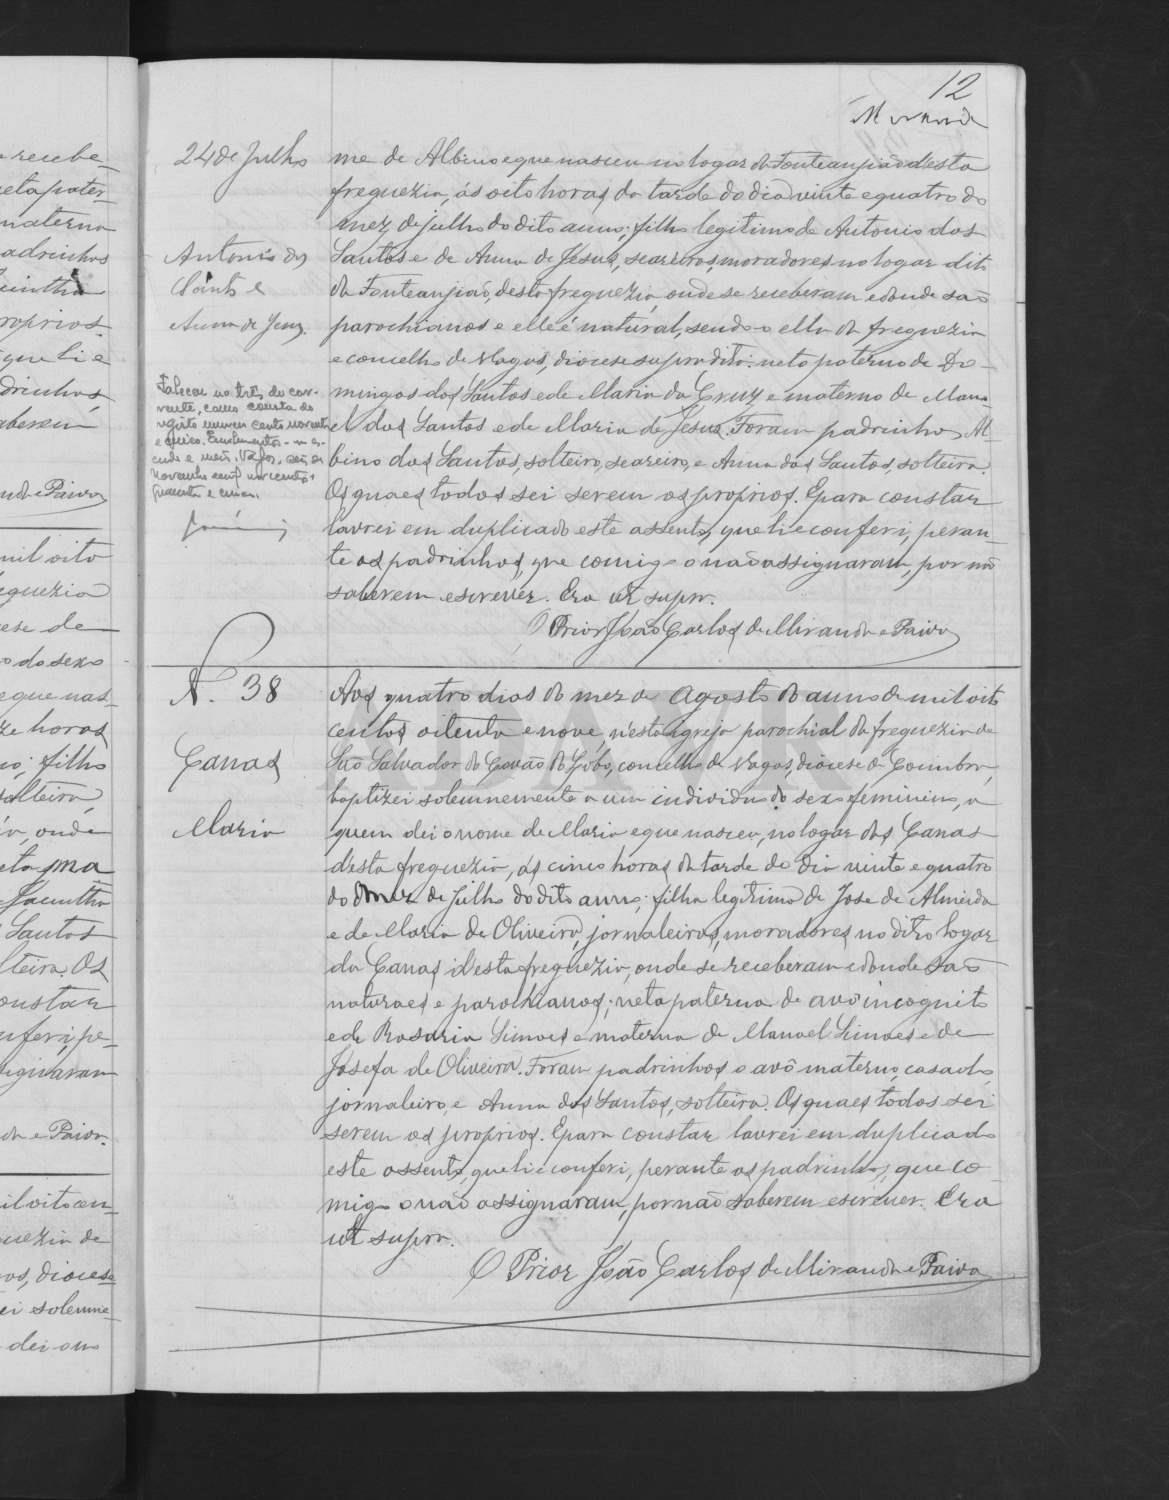 12
Miranda
24 de Julho
Antonio dos
Santos e
Anna de Jesus.
Faleceu no três do cor-
rente, como consta do
registo numero cento noventa
e cinco.
Novembro
quarenta e cinco.
me de Albino e que nasceu no logar da Fonteanjeão desta
freguezia, ás oito horas da tarde do dia vinte e quatro do
mez de julho do dito anno; filho legitimo de Antonio dos
Santos e de Anna de Jesus, seareiros, moradores no logar dito
da Fonteanjeão, desta freguezia, onde se receberam e donde são
parochianos e elle é natural, sendo-o ella da freguezia
e concelho de Vagos, diocese supradita: neto paterno de Do-
mingos dos Santos e de Maria da Cruz e materno de Mano-
el dos Santos e de Maria de Jesus. Foram padrinhos Al-
bino dos Santos, solteiro, seareiro, e Anna dos Santos, solteira.
Os quaes todos sei serem os proprios. E para constar
lavrei em duplicado este assento, que li e conferi, peran-
te os padrinhos, que comigo o não assignaram, por não
saberem escrever. Era ut supra.
O Prior João Carlos de Miranda e Paiva
N. 38
Canas
Maria
Aos quatro dias do mez de Agosto do anno de mil oito
centos oitenta e nove, n'esta igreja parochial da freguezia de
São Salvador do Covão do Lobo, concelho de Vagos, diocese de Coimbra,
baptizei solemnemente a um individuo do sexo feminino, a
quem dei o nome de Maria e que nasceu, no logar das Canas
desta freguezia, ás cinco horas da tarde do dia vinte e quatro
do mez de Julho do dito anno; filha legitima de Jose de Almeida
e de Maria de Oliveira, jornaleiros, moradores no dito logar
da Canas desta freguezia, onde se receberam e donde são
naturaes e parochianos; neta paterna de avô incognito
e de Rosaria Simoes e materna de Manoel Simoes e de
Josefa de Oliveira. Foram padrinhos o avô materno, casado,
jornaleiro, e Anna dos Santos, solteira. Os quaes todos sei
serem os proprios. E para constar lavrei em duplicado
este assento, que li e conferi, perante os padrinhos, que co-
migo o não assignaram, por não saberem escrever. Era
ut supra.
O Prior João Carlos de Miranda e Paiva